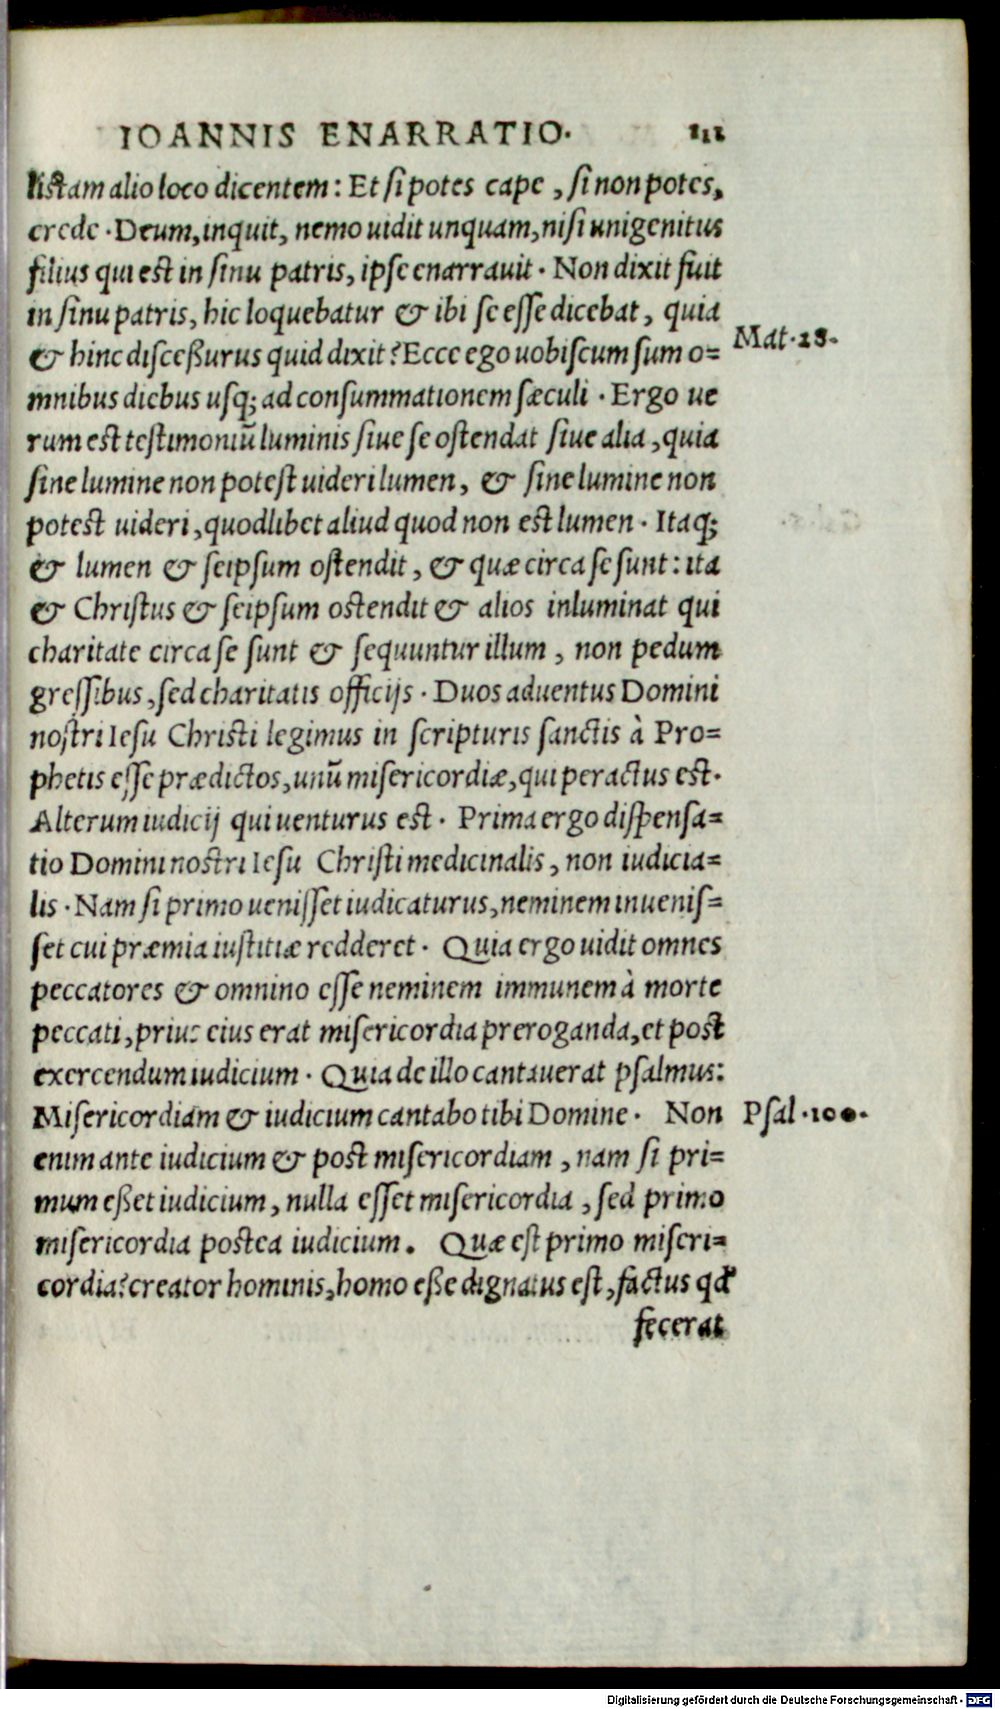 IOANNIS ENARRATIO. 111
listam alio loco dicentem: Et si potes cape, si non potes,
crede. Deum, inquit, nemo uidit unquam, nisi unigenitus
filius qui est in sinu patris, ipse enarrauit. Non dixit fuit
in sinu patris, hic loquebatur & ibi se esse dicebat, quia
& hinc discessurus quid dixit? Ecce ego uobiscum sum o=
Mat. 28.
mnibus diebus usq; ad consummationem sæculi. Ergo ue
rum est testimoniũ luminis siue se ostendat siue alia, quia
sine lumine non potest uideri lumen, & sine lumine non
potest uideri, quodlibet aliud quod non est lumen. Itaq;
& lumen & seipsum ostendit, & quæ circa se sunt: ita
& Christus & seipsum ostendit & alios inluminat qui
charitate circa se sunt & sequuntur illum, non pedum
gressibus, sed charitatis officijs. Duos aduentus Domini
nostri Iesu Christi legimus in scripturis sanctis à Pro=
phetis esse prædictos, unũ misericordiæ, qui peractus est.
Alterum iudicij qui uenturus est. Prima ergo dispensa=
tio Domini nostri Iesu Christi medicinalis, non iudicia=
lis. Nam si primo uenisset iudicaturus, neminem inuenis=
set cui præmia iustitiæ redderet. Quia ergo uidit omnes
peccatores & omnino esse neminem immunem à morte
peccati, prius eius erat misericordia preroganda, et post
exercendum iudicium. Quia de illo cantauerat psalmus:
Misericordiam & iudicium cantabo tibi Domine. Non
Psal. 100.
enim ante iudicium & post misericordiam, nam si pri=
mum esset iudicium, nulla esset misericordia, sed primo
misericordia postea iudicium. Quæ est primo miseri=
cordia? creator hominis, homo esse dignatus est, factus qđ
fecerat
Digitalisierung gefördert durch die Deutsche Forschungsgemeinschaft - DFG